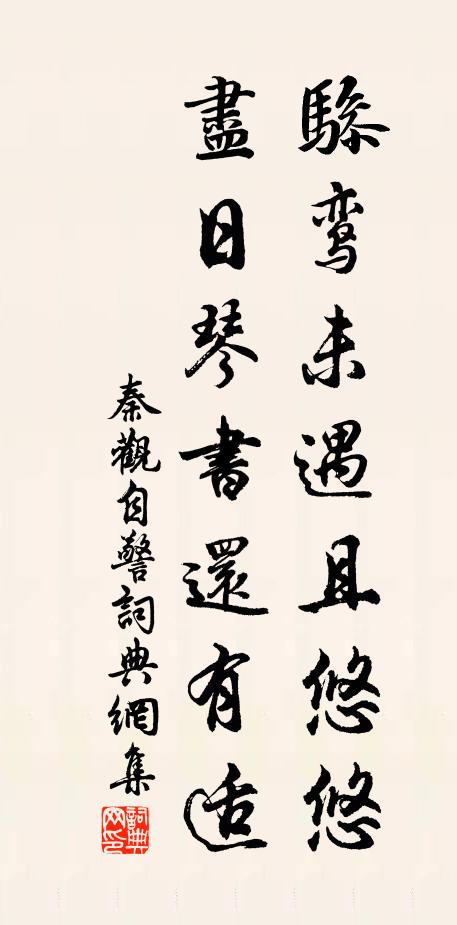 驂鸾未遇且悠悠
盡日琴書還有适
秦觀自警詞典網集
詞典网印